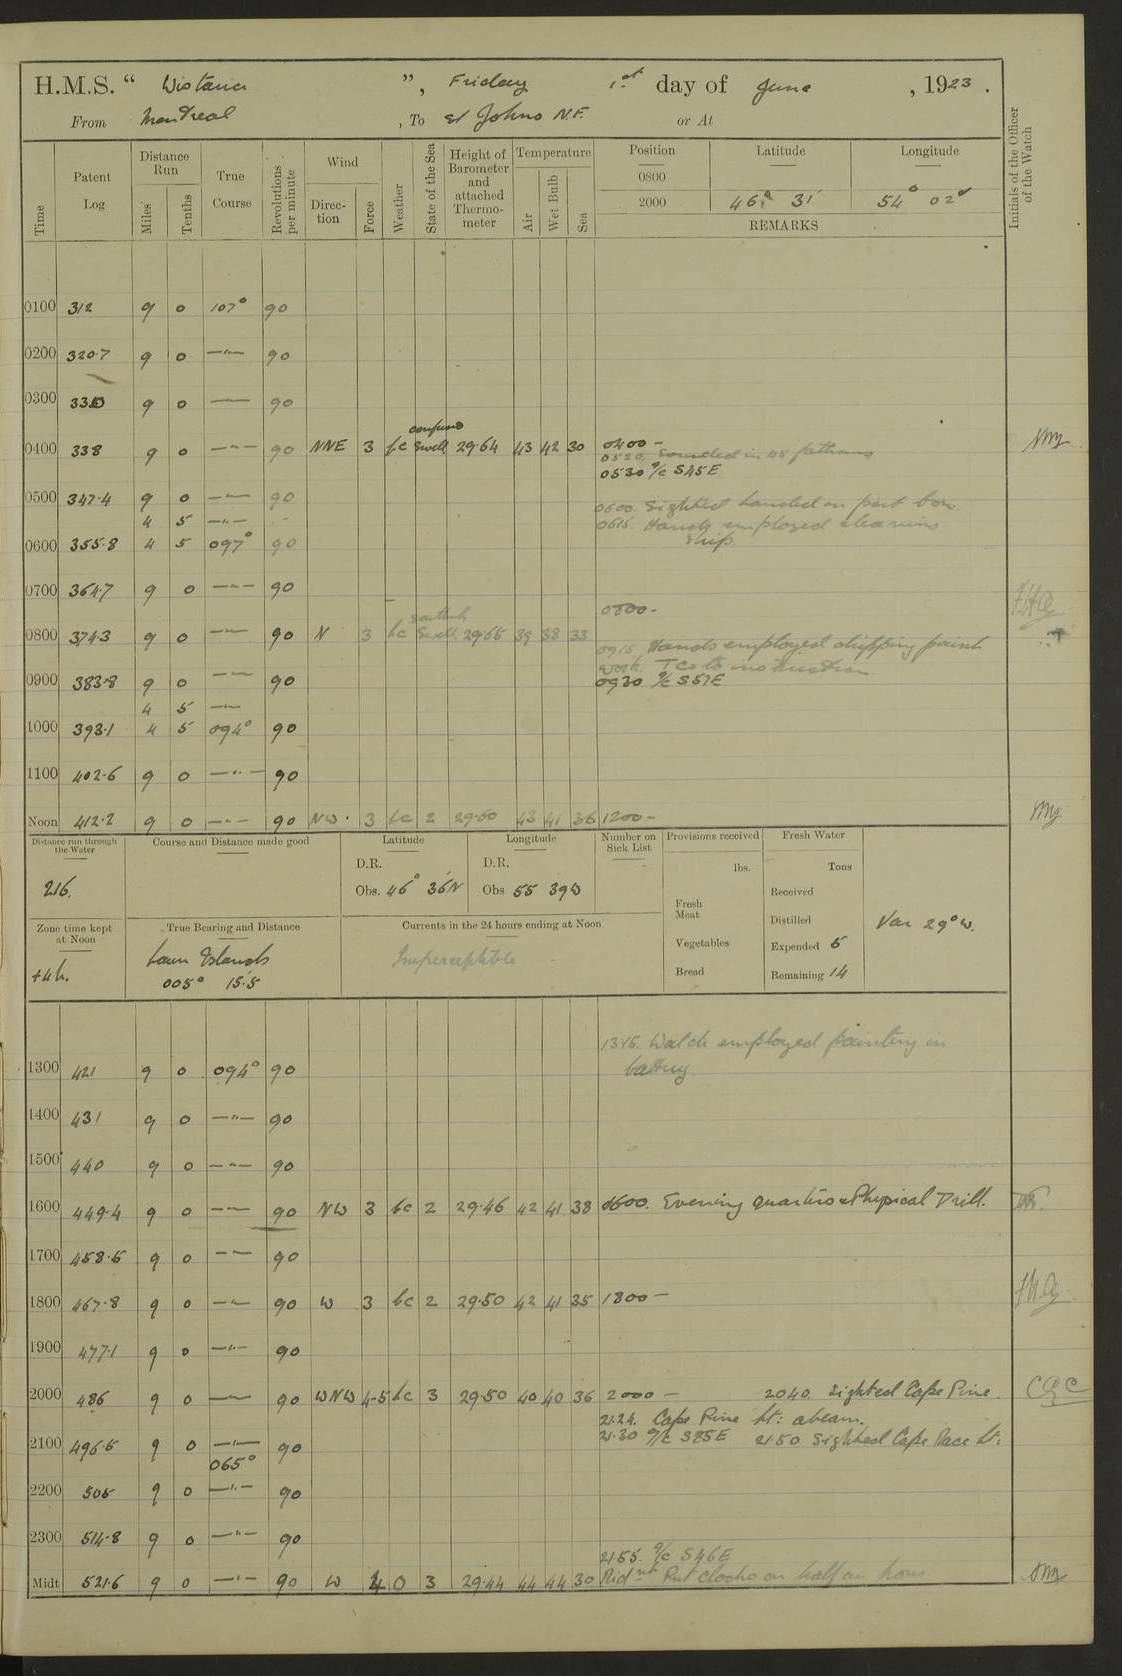 H.M.S. “ Wistaria ”, Friday 1st day of June, 1923.
From Montreal, To St Johns N.F. or At
Time
Patent Log
Distance Run
Miles
Tenths
True Course
Revolutions per minute
Wind
Direction
Force
Weather
State of the Sea
Height of Barometer and attached Thermometer
Temperature
Air
Wet Bulb
Sea
Position Latitude Longitude
0800
2000 46° 31' 54° 02'
REMARKS
Initials of the Officer of the Watch
0100 312 9 0 107° 90
0200 320.7 9 0 —"— 90
0300 330 9 0 —"— 90
0400 338 9 0 —"— 90 NNE 3 bc confused Swell 29.64 43 42 30 0400 –
0520. Sounded in 45 fathoms
0530 a/c S45E
0500 347.4 9 0 —"— 90
4 5 —"—
0600. Sighted land on port bow
0615. Hands employed cleaning
ship
0600 355.8 4 5 097° 90
0700 364.7 9 0 —"— 90
0800 –
0800 374.3 9 0 —"— 90 N 3 bc Swell 29.55 39 38 33
0915. Hands employed chipping paint
work. TCs to instruction
0930 a/c S57E
0900 383.8 9 0 —"— 90
4 5 —"—
1000 393.1 4 5 094° 90
1100 402.6 9 0 —"— 90
Noon 412.2 9 0 —"— 90 NW. 3 bc 2 29.50 43 41 36 1200 –
Distance run through the Water
216.
Course and Distance made good
Latitude
D.R.
Obs. 46° 36'N
Longitude
D.R.
Obs 55 39W
Number on Sick List
Provisions received
lbs.
Fresh Meat
Vegetables
Bread
Fresh Water
Tons
Received
Distilled
Expended 5
Remaining 14
Var 29° W.
Zone time kept at Noon
+4h.
True Bearing and Distance
Lawn Islands
005° 15.5
Currents in the 24 hours ending at Noon
Imperceptible
1315. Watch employed painting in
battery
1300 421 9 0 094° 90
1400 431 9 0 —"— 90
1500 440 9 0 —"— 90
1600 449.4 9 0 —"— 90 NW 3 bc 2 29.46 42 41 38 1600. Evening quarters & Physical Drill.
1700 458.5 9 0 —"— 90
1800 467.8 9 0 —"— 90 W 3 bc 2 29.50 42 41 35 1800 –
1900 477.1 9 0 —"— 90
2000 486 9 0 —"— 90 WNW 4-5 bc 3 29.50 40 40 36 2000 – 2040. Sighted Cape Pine.
21.24. Cape Pine Lt: abeam.
21.30 a/c S85E 21.50 Sighted Cape Race Lt:
2100 495.5 9 0 —"— 90
065°
2200 505 9 0 —"— 90
2300 514.8 9 0 —"— 90
2155. a/c S46E
Midt 521.6 9 0 —"— 90 W 4 0 3 29.44 44 44 30 Midnt Put clocks on half an hour